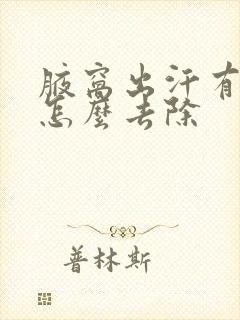 腋窩出汗有
怎麼去除
普林斯